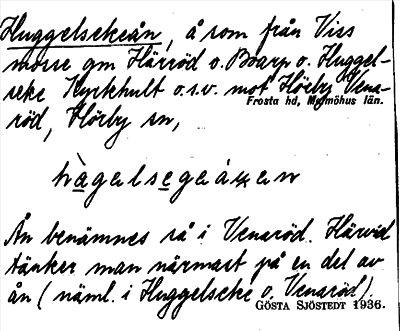 Huggelsekeån, å som från Viss
mosse gm Härröd o. Boarp o. Huggel-
seke Kyrkhult o.s.v. mot Hörby Vena-
Frosta hd, Malmöhus län.
röd, Hörby sn,
Ån benämnes så i Venaröd. Härvid
tänker man närmast på en del av
ån (näml. i Huggelseke o. Venaröd).
GÖSTA SJÖSTEDT 1936.